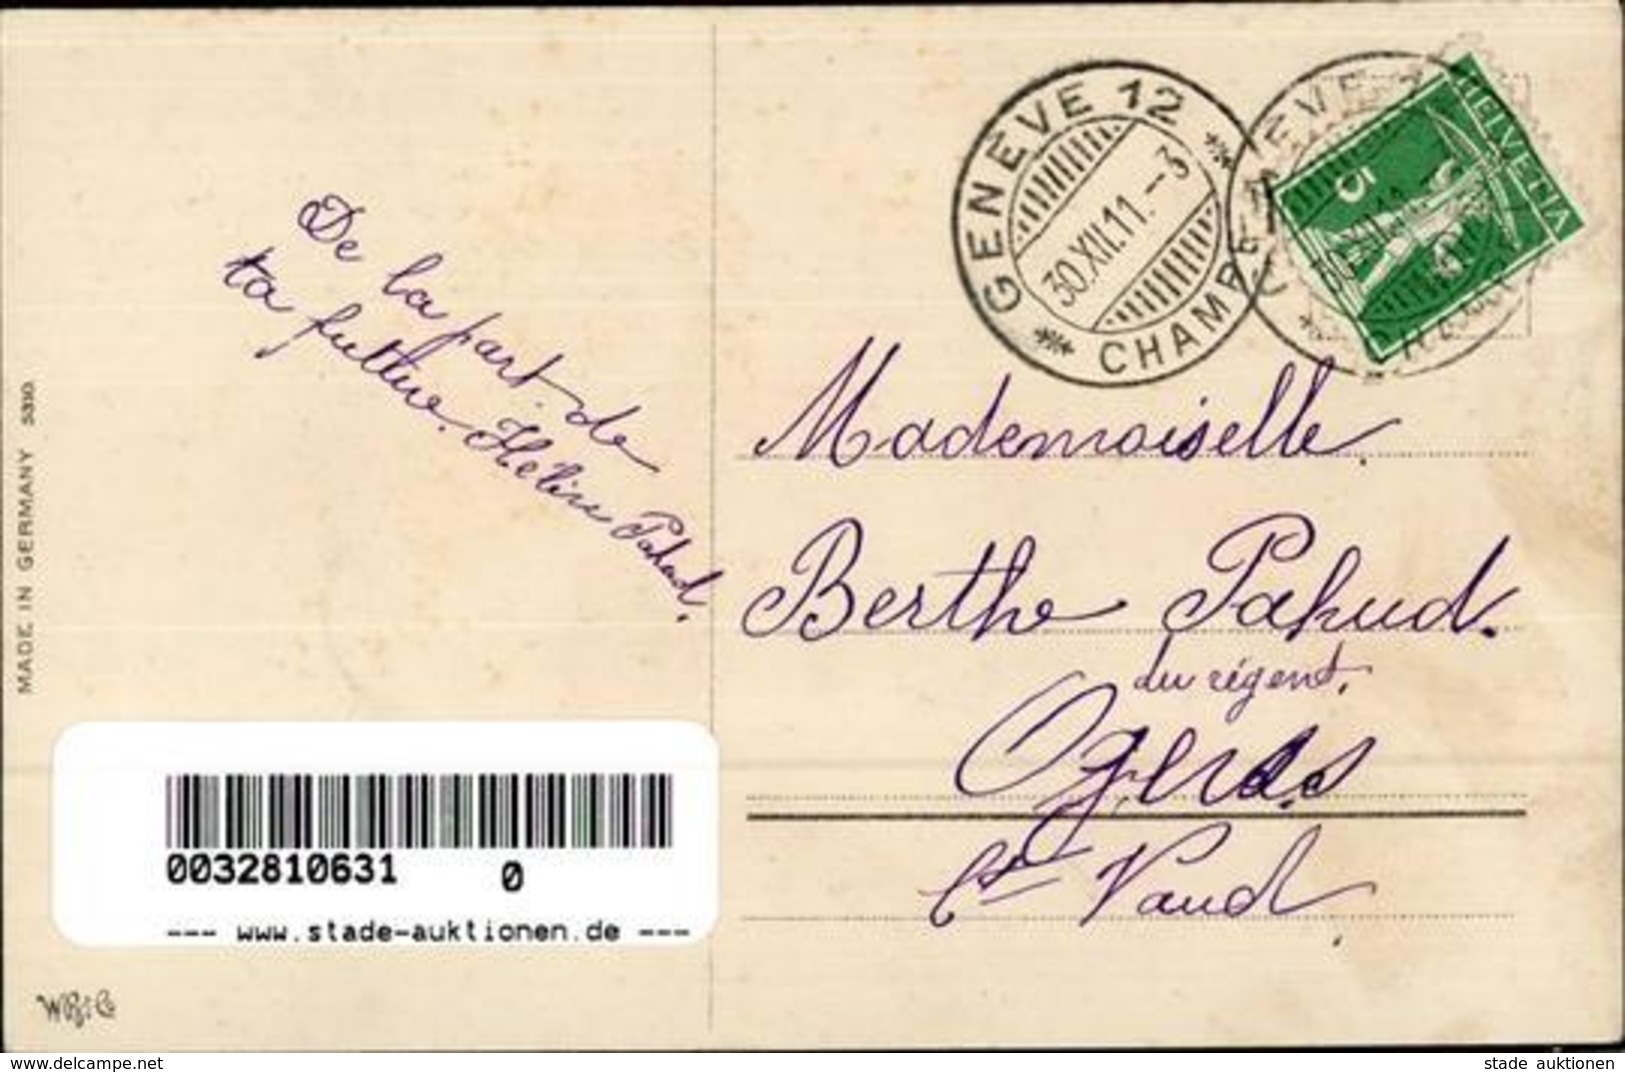 GENEVE 12
30.XII.11.-3
CHAMPEL
HELVETIA
5
30.XII.11
De la part de
ta future. Hélène Pahud.
Mademoiselle.
Berthe Pahud.
du régent.
Ogens
Ct. Vaud
MADE IN GERMANY
0032810631 0
--- www.stade-auktionen.de ---
www.delcampe.net
stade_auktionen